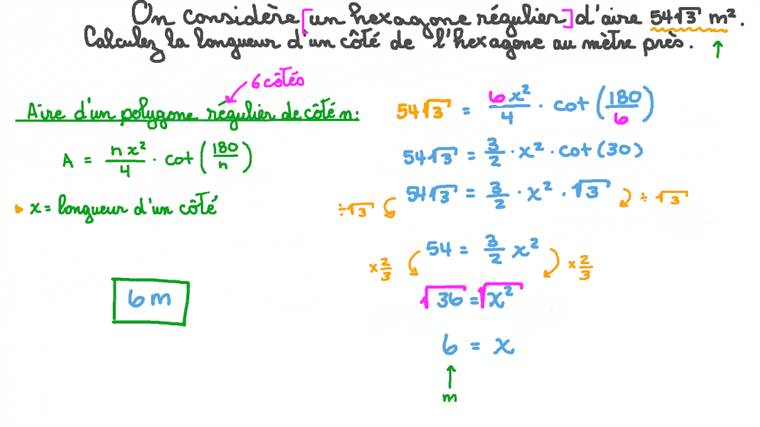 On considère [un hexagone régulier] d'aire 54√3 m².
Calculez la longueur d'un côté de l'hexagone au mètre près.
6 côtés
Aire d'un polygone régulier de côté n:
A = nx²/4 · cot(180/n)
x = longueur d'un côté
6 m
54√3 = 6x²/4 · cot(180/6)
54√3 = 3/2 · x² · cot(30)
÷√3 54√3 = 3/2 · x² · √3 ÷√3
54 = 3/2 x²
×2/3 ×2/3
√36 = √x²
6 = x
m